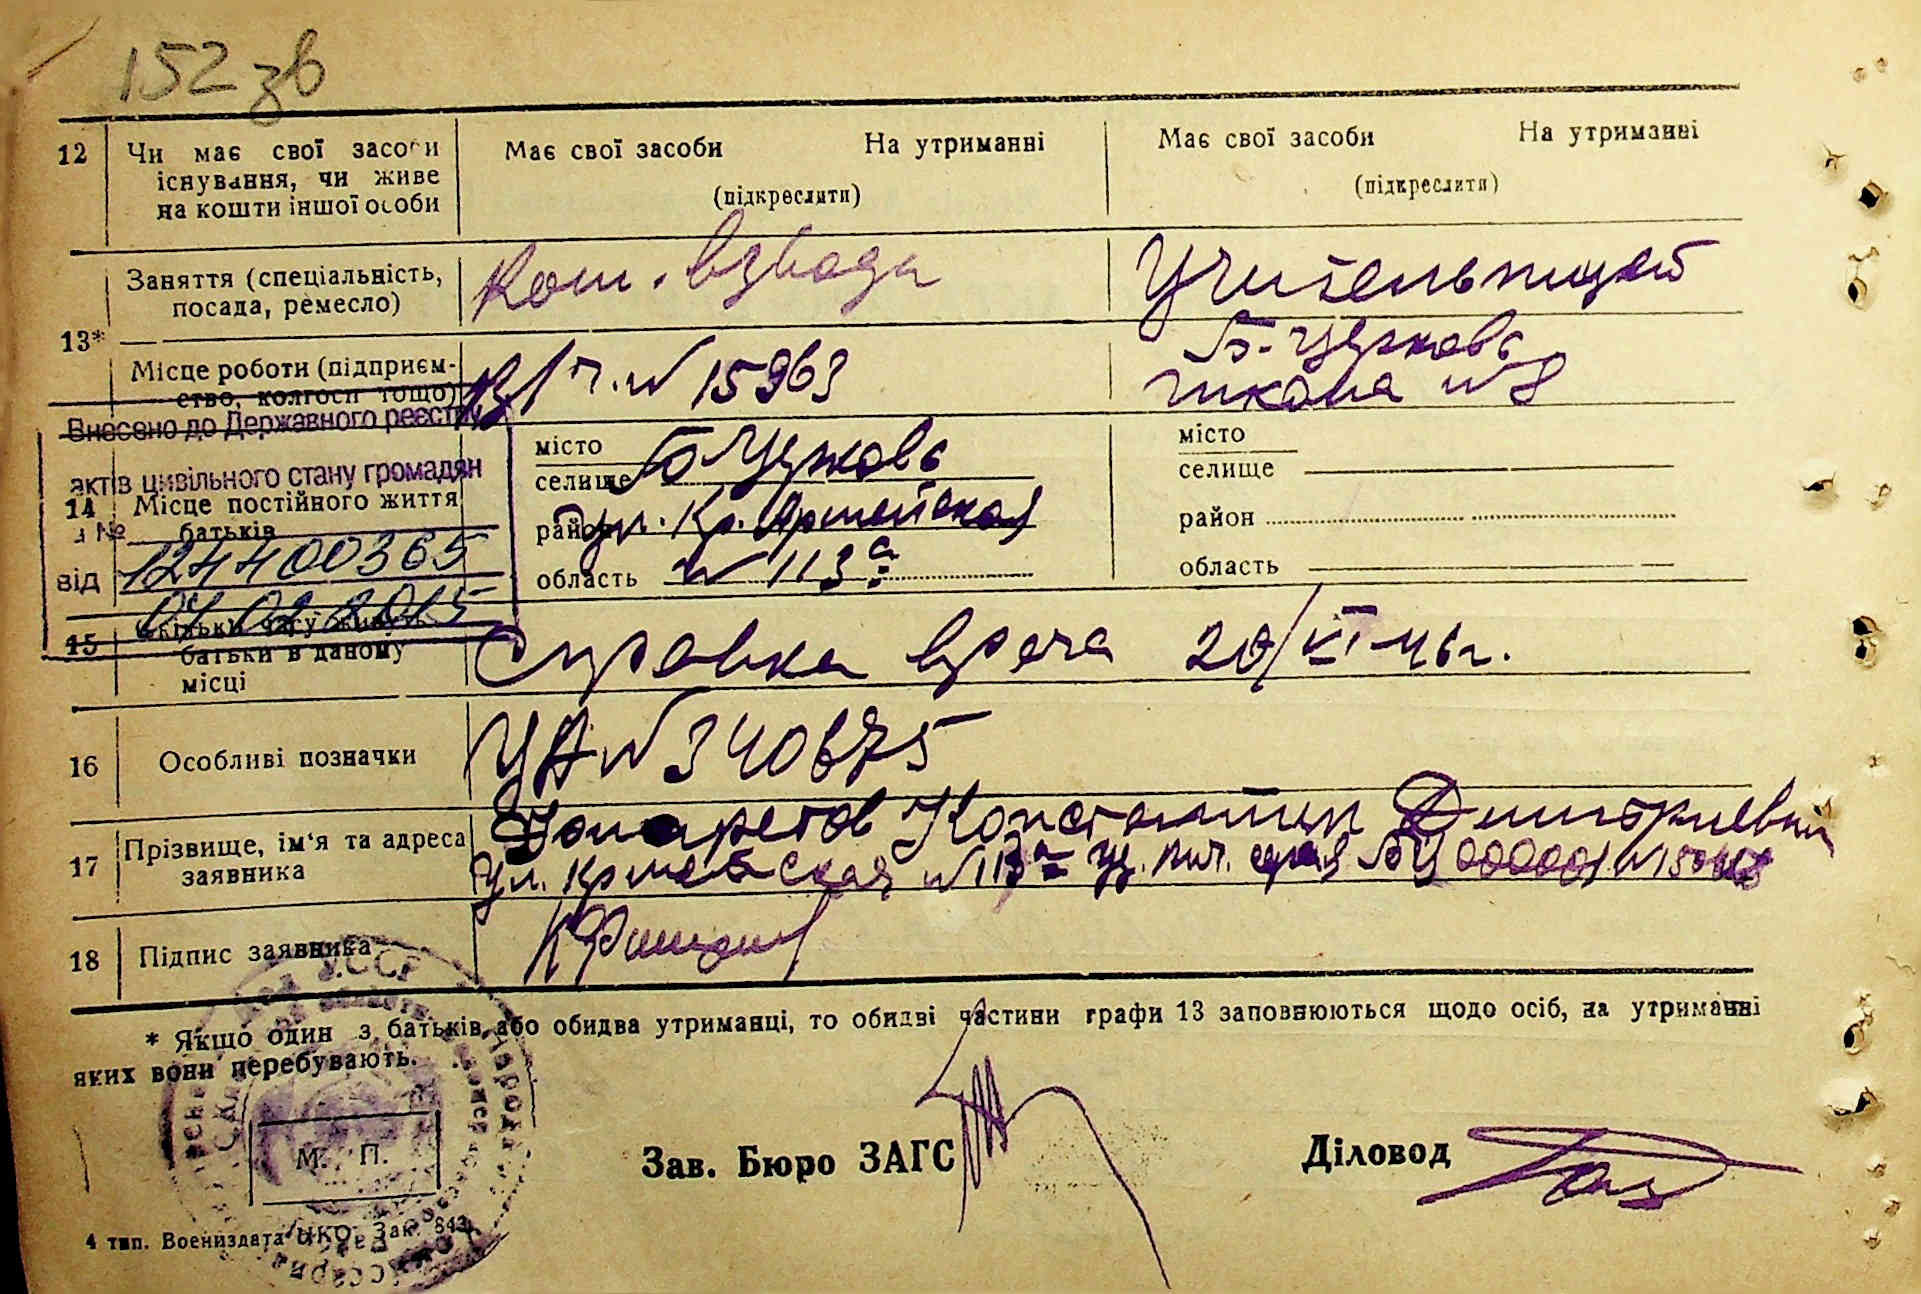 152 зв
12 Чи має свої засоби існування, чи живе на кошти іншої особи
Має свої засоби На утриманні
(підкреслити)
Має свої засоби На утриманні
(підкреслити)
13*
Заняття (спеціальність, посада, ремесло)
Ком. взвода
Учительницей
Місце роботи (підприємство, колгосп тощо)
В/ч. № 15963
Б-Церковь
школа №8
Внесено до Державного реєстру
актів цивільного стану громадян
за №
124400365
від 04 02 2015
14 Місце постійного життя батьків
місто
селище Б Церковь
район ул. Кр. Армейская
область № 113а
місто
селище
район
область
15 Скільки часу живуть батьки в даному місці
Справка врача 20/XI-46г.
16 Особливі позначки
УА № 340875
17 Прізвище, ім'я та адреса заявника
Константин Дмитриевич
ул. №113а
18 Підпис заявника
* Якщо один з батьків або обидва утриманці, то обидві частини графи 13 заповнюються щодо осіб, на утриманні
яких вони перебувають.
М. П.
Зав. Бюро ЗАГС
Діловод
4 тип. Воениздата НКО. Зак. 843